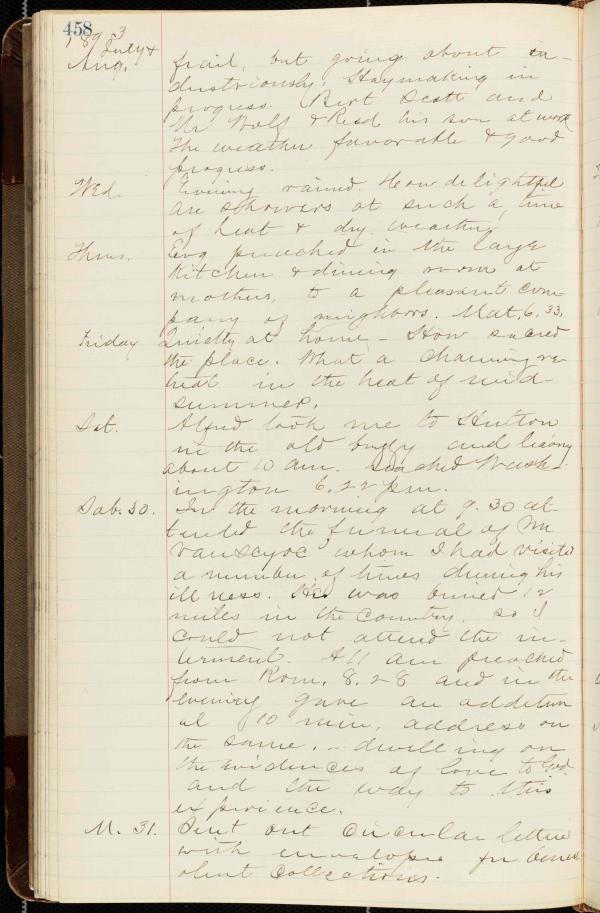 458
1893
July &
Aug. frail, but going about in-
dustriously. Haymaking in
progress. Bert Scott and
Mr. Wolf & Reed his son at work
The weather favorable & good
progress.
Wed. Evening rained. How delightful
are showers at such a time
of heat & dry weather.
Thurs. Evg preached in the large
kitchen & dining room at
mothers, to a pleasant com-
pany of neighbors. Mat. 6.33.
Friday Quietly at home - How sacred
the place. What a charming re-
treat in the heat of mid-
summer.
Sat. Alfred took me to Hutton
in the old buggy and leaving
about 10 am. reached Wash-
ington 6.22 pm.
Sab. 30. In the morning at 9.30 at-
tended the funeral of Mr
VanScyoc whom I had visited
a number of times during his
illness. He was buried 12
miles in the country, so I
could not attend the in-
terment. At 11 am preached
from Rom. 8.28 and in the
evening gave an addition
al 10 min. address on
the same, - dwelling on
the evidences of love to God
and the way to this
experience.
M. 31. Sent out circular letters
with envelopes for benev
olent collections.